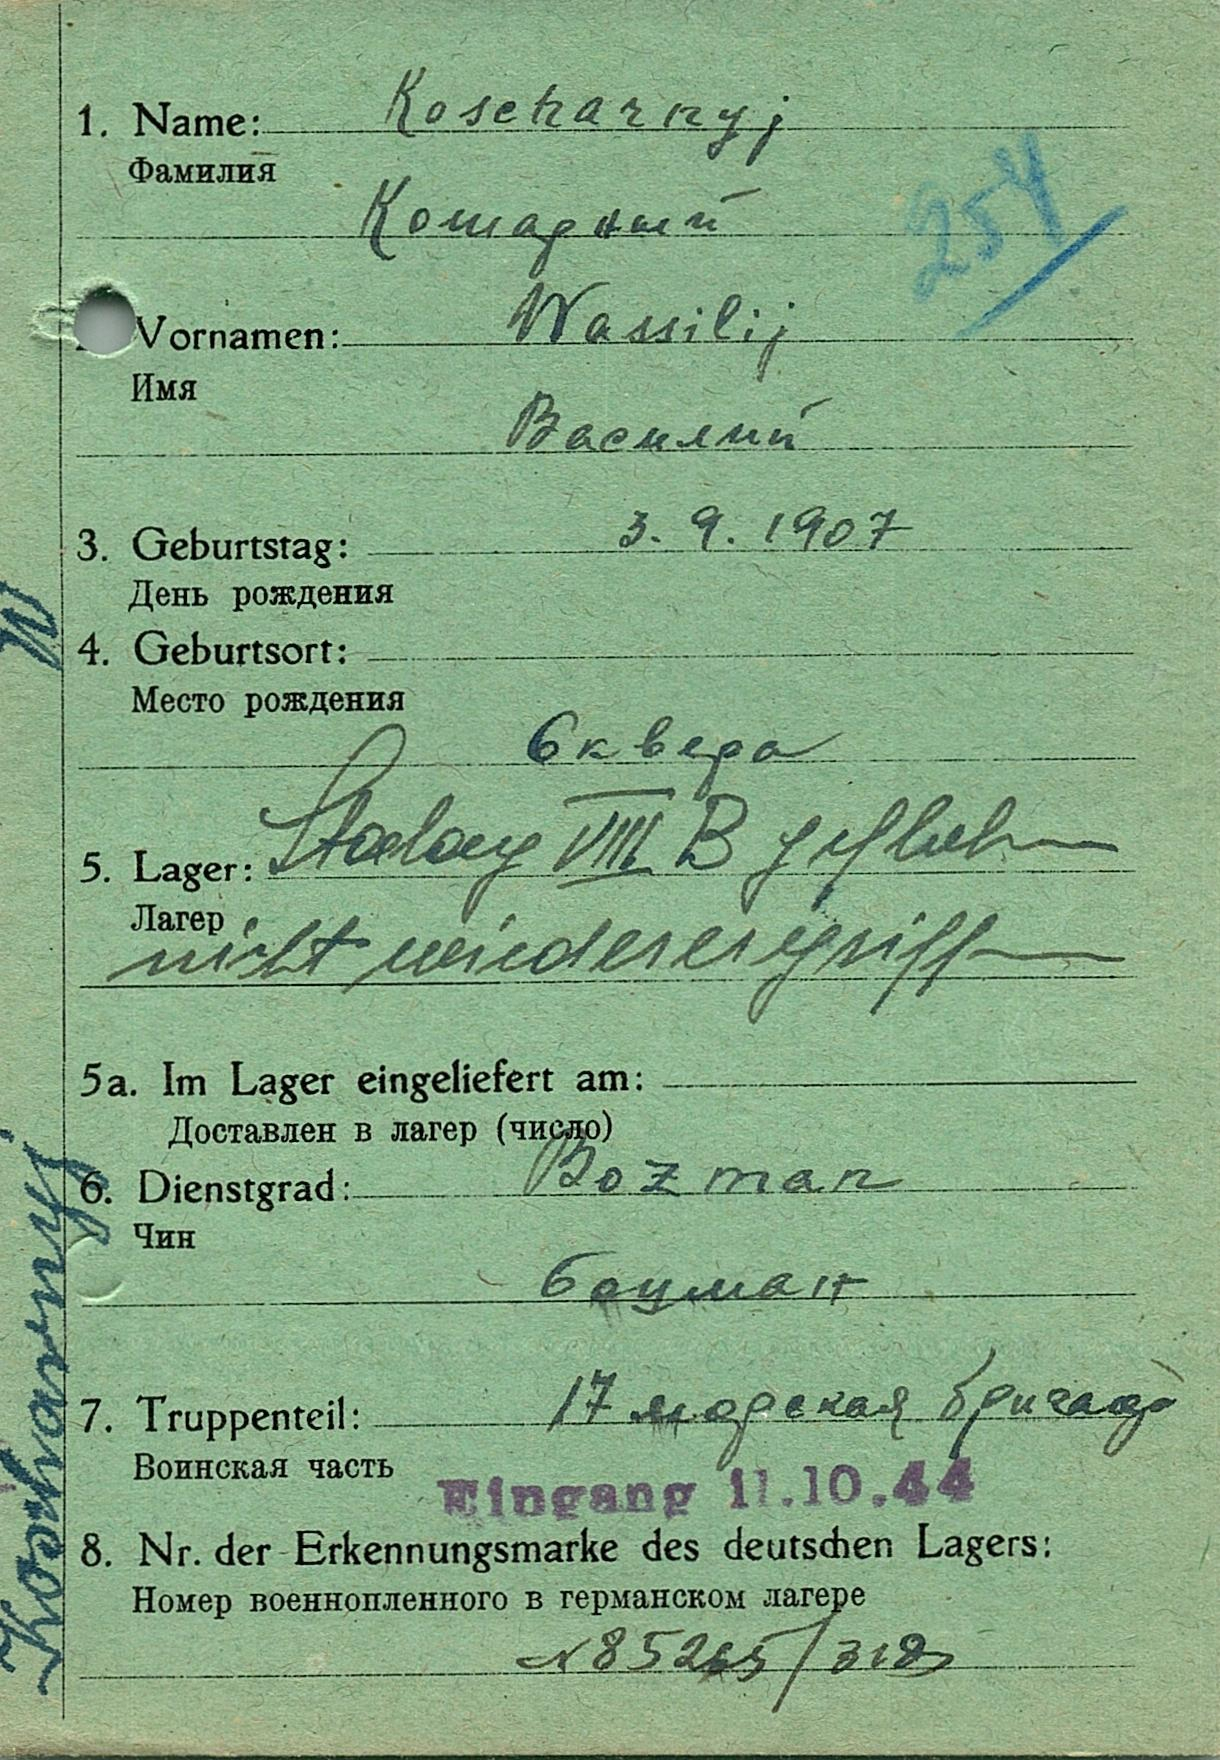 1. Name: Koscharnyj
Фамилия
Кошарный
254
Vornamen: Wassilij
Имя
Василий
3. Geburtstag: 3. 9. 1907
День рождения
4. Geburtsort:
Место рождения
Сквера
5. Lager: Stalag VIII B geflohen
Лагер
nicht wiederergriffen
5a. Im Lager eingeliefert am:
Доставлен в лагер (число)
6. Dienstgrad: Bozman
Чин
боцман
7. Truppenteil: 17 морская бригада
Воинская часть
Eingang 11.10.44
8. Nr. der Erkennungsmarke des deutschen Lagers:
Номер военнопленного в германском лагере
N 85265/318
Koscharnyj W